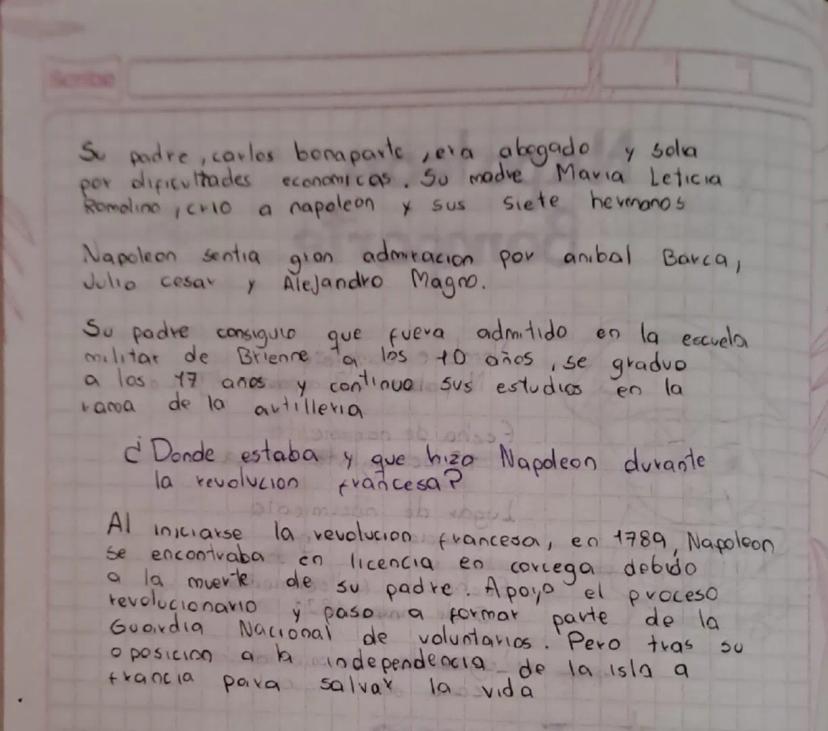 Scribe
Su padre, carlos bonaparte, era abogado y solia
por dificultades economicas. Su madre Maria Leticia
Romolino, crio a napoleon y sus siete hermanos
Napoleon sentia gran admiracion por anibal Barca,
Julio cesar y Alejandro Magno.
Su padre consiguio que fuera admitido en la escuela
militar de Brienne a los 10 años, se graduo
a los 17 anos y continuo sus estudios en la
rama de la artilleria
¿Donde estaba y que hizo Napoleon durante
la revolucion francesa?
Al iniciarse la revolucion francesa, en 1789, Napoleon
se encontraba en licencia en corcega debido
a la muerte de su padre. Apoyo el proceso
revolucionario y paso a formar parte de la
Guardia Nacional de voluntarios. Pero tras su
oposicion a la independencia de la isla a
francia para salvar la vida